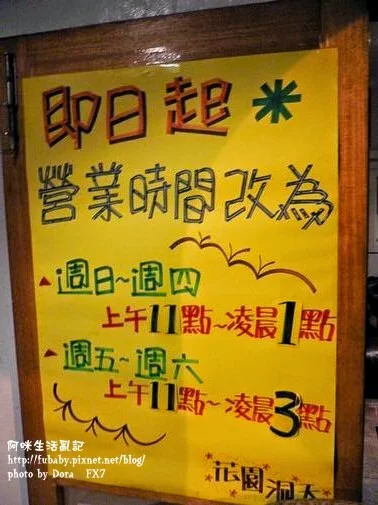 即日起＊
營業時間改為
週日~週四
上午11點~凌晨1點
週五~週六
上午11點~凌晨3點
花園洞天
阿咪生活亂記
http://fubaby.pixnet.net/blog/
photo by Dora FX7